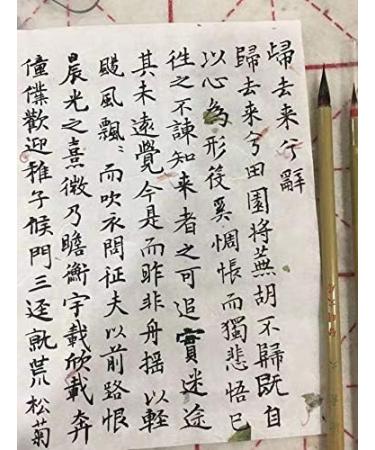 歸去来兮辭
歸去来兮田園将蕪胡不歸既自
以心為形役奚惆悵而獨悲悟已
徃之不諫知来者之可追實迷途
其未遠覺今是而昨非舟摇以輕
颺風飄〻而吹衣問征夫以前路恨
晨光之熹微乃瞻衡宇載欣載奔
僮僕歡迎稚子候門三逕就荒松菊